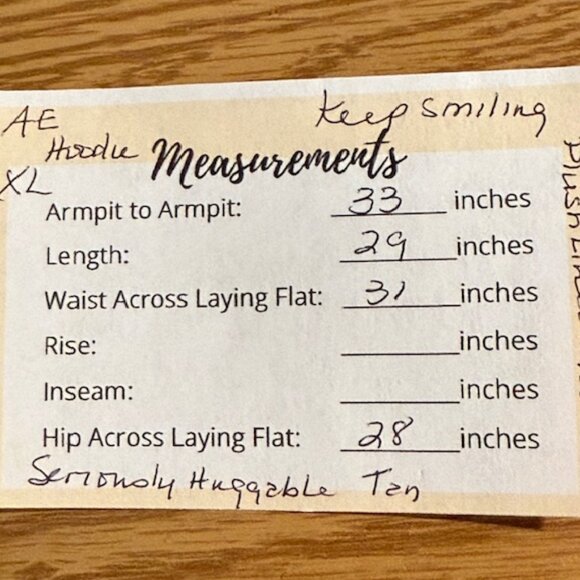 AE Keep Smiling
Hoodie Measurements
XL
Armpit to Armpit: 33 inches
Length: 29 inches
Waist Across Laying Flat: 31 inches
Rise: inches
Inseam: inches
Hip Across Laying Flat: 28 inches
Seriously Huggable Tan
Plush